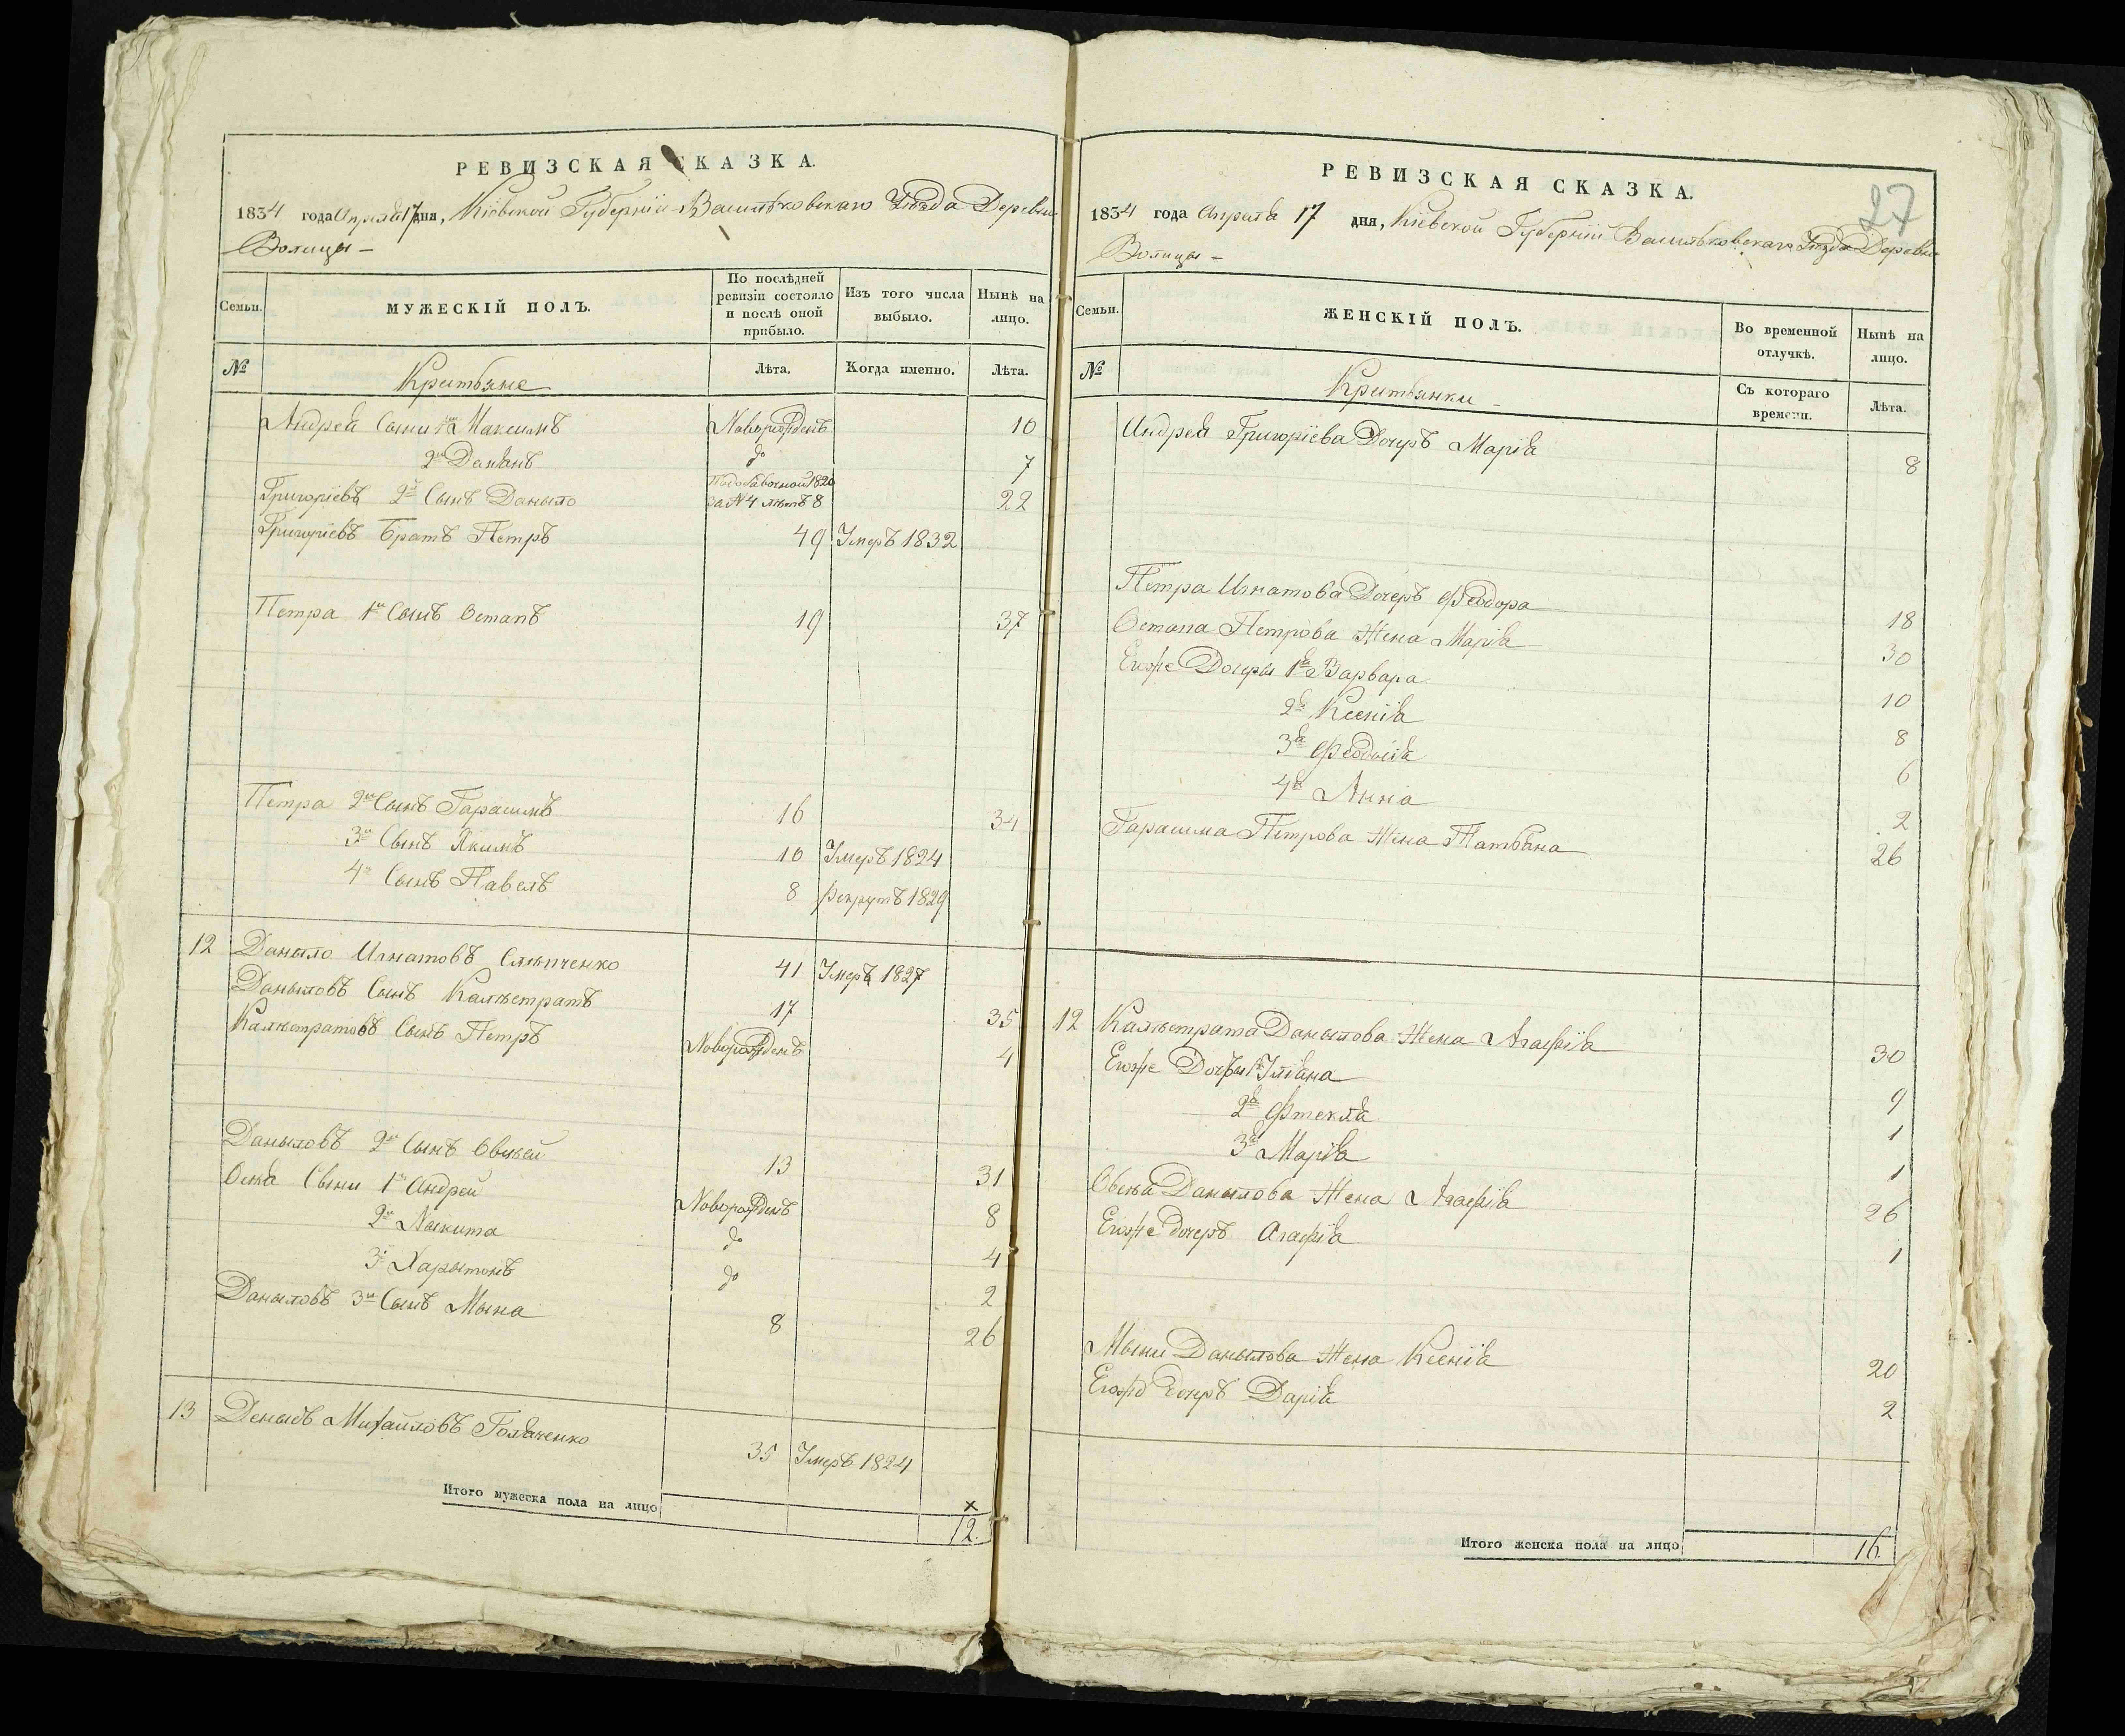 РЕВИЗСКАЯ СКАЗКА.
1834 года Апреля 17 дня, Кіевской Губерніи Васильковскаго Уѣзда Деревни
Волицы –
Семьи.
МУЖЕСКІЙ ПОЛЪ.
По послѣдней ревизіи состояло и послѣ оной прибыло.
Изъ того числа выбыло.
Нынѣ на лицо.
№
Крестьяне
Лѣта.
Когда именно.
Лѣта.
Андрея Сыни 1й Максимъ Новорожденъ 10
2й Демянъ до 7
Григоріевъ 2й Сынъ Даныло По добавочной 1820 за N4 лѣтъ 8 22
Григоріевъ Братъ Петръ 49 Умеръ 1832
Петра 1й Сынъ Остапъ 19 37
Петра 2й Сынъ Гарасимъ 16 34
3й Сынъ Якимъ 10 Умеръ 1824
4й Сынъ Павелъ 8 рекрутъ 1829
12 Даныло Игнатовъ Слѣпченко 41 Умеръ 1827
Даныловъ Сынъ Калѣстратъ 17 35
Калѣстратовъ Сынъ Петръ Новорожденъ 4
Даныловъ 2й Сынъ Овсѣй 13 31
Осѣя Сыни 1й Андрей Новорожденъ 8
2й Никита до 4
3й Харытонъ до 2
Даныловъ 3й Сынъ Мына 8 26
13 Денысъ Михайловъ Голяченко 35 Умеръ 1824
Итого мужеска пола на лицо
×
12.
РЕВИЗСКАЯ СКАЗКА.
27
1834 года Апреля 17 дня, Кіевской Губерніи Васильковскаго Уѣзда Деревни
Волицы –
Семьи.
ЖЕНСКІЙ ПОЛЪ.
Во временной отлучкѣ.
Нынѣ на лицо.
№
Крестьянки –
Съ котораго времени.
Лѣта.
Андрея Григоріева Дочеръ Марія 8
Петра Игнатова Дочеръ Феодора 18
Остапа Петрова Жена Марія 30
Егоже Дочеры 1я Варвара 10
2я Ксенія 8
3я Феодосія 6
4я Анна 2
Гарасима Петрова Жена Татьяна 26
12 Калѣстрата Данылова Жена Агафія 30
Егоже Дочеры 1я Уліяна 9
2я Фтекля 1
3я Марія 1
Овсѣя Данылова Жена Агафія 26
Егоже дочеръ Агафія 1
Мыни Данылова Жена Ксенія 20
Егоже дочеръ Дарія 2
Итого женска пола на лицо 16.